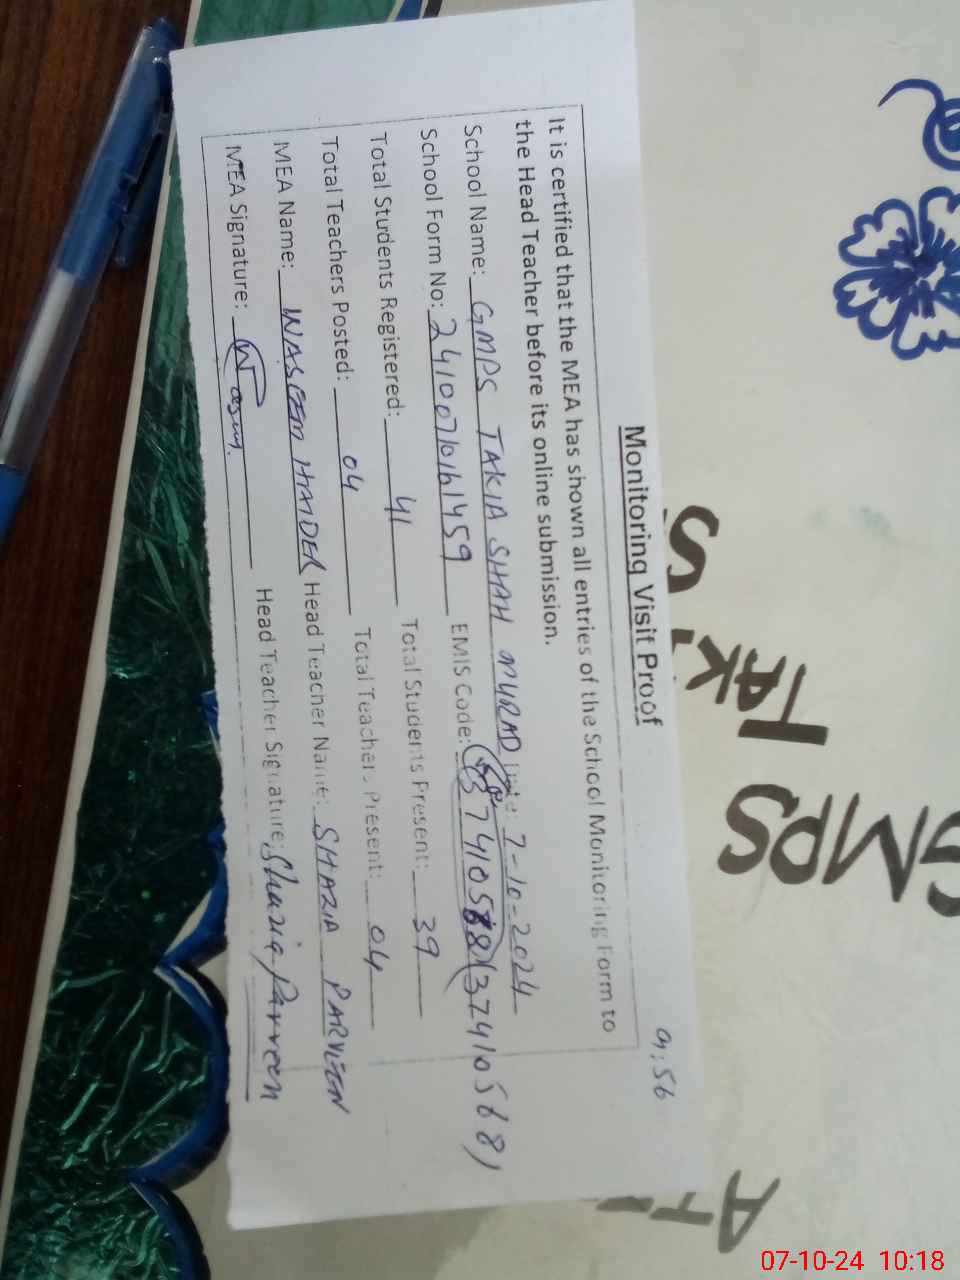 9:56
Monitoring Visit Proof
It is certified that the MEA has shown all entries of the School Monitoring Form to
the Head Teacher before its online submission.
School Name: GMPS TAKIA SHAH MURAD Date: 7-10-2024
School Form No: 24100710161459 EMIS Code: (37410568)
Total Students Registered: 41 Total Students Present: 39
Total Teachers Posted: 04 Total Teachers Present: 04
MEA Name: WASEEM HAIDER Head Teacher Name: SHAZIA PARVEEN
MEA Signature: Head Teacher Signature: Shazia Parveen
GMPS
TAK
07-10-24 10:18